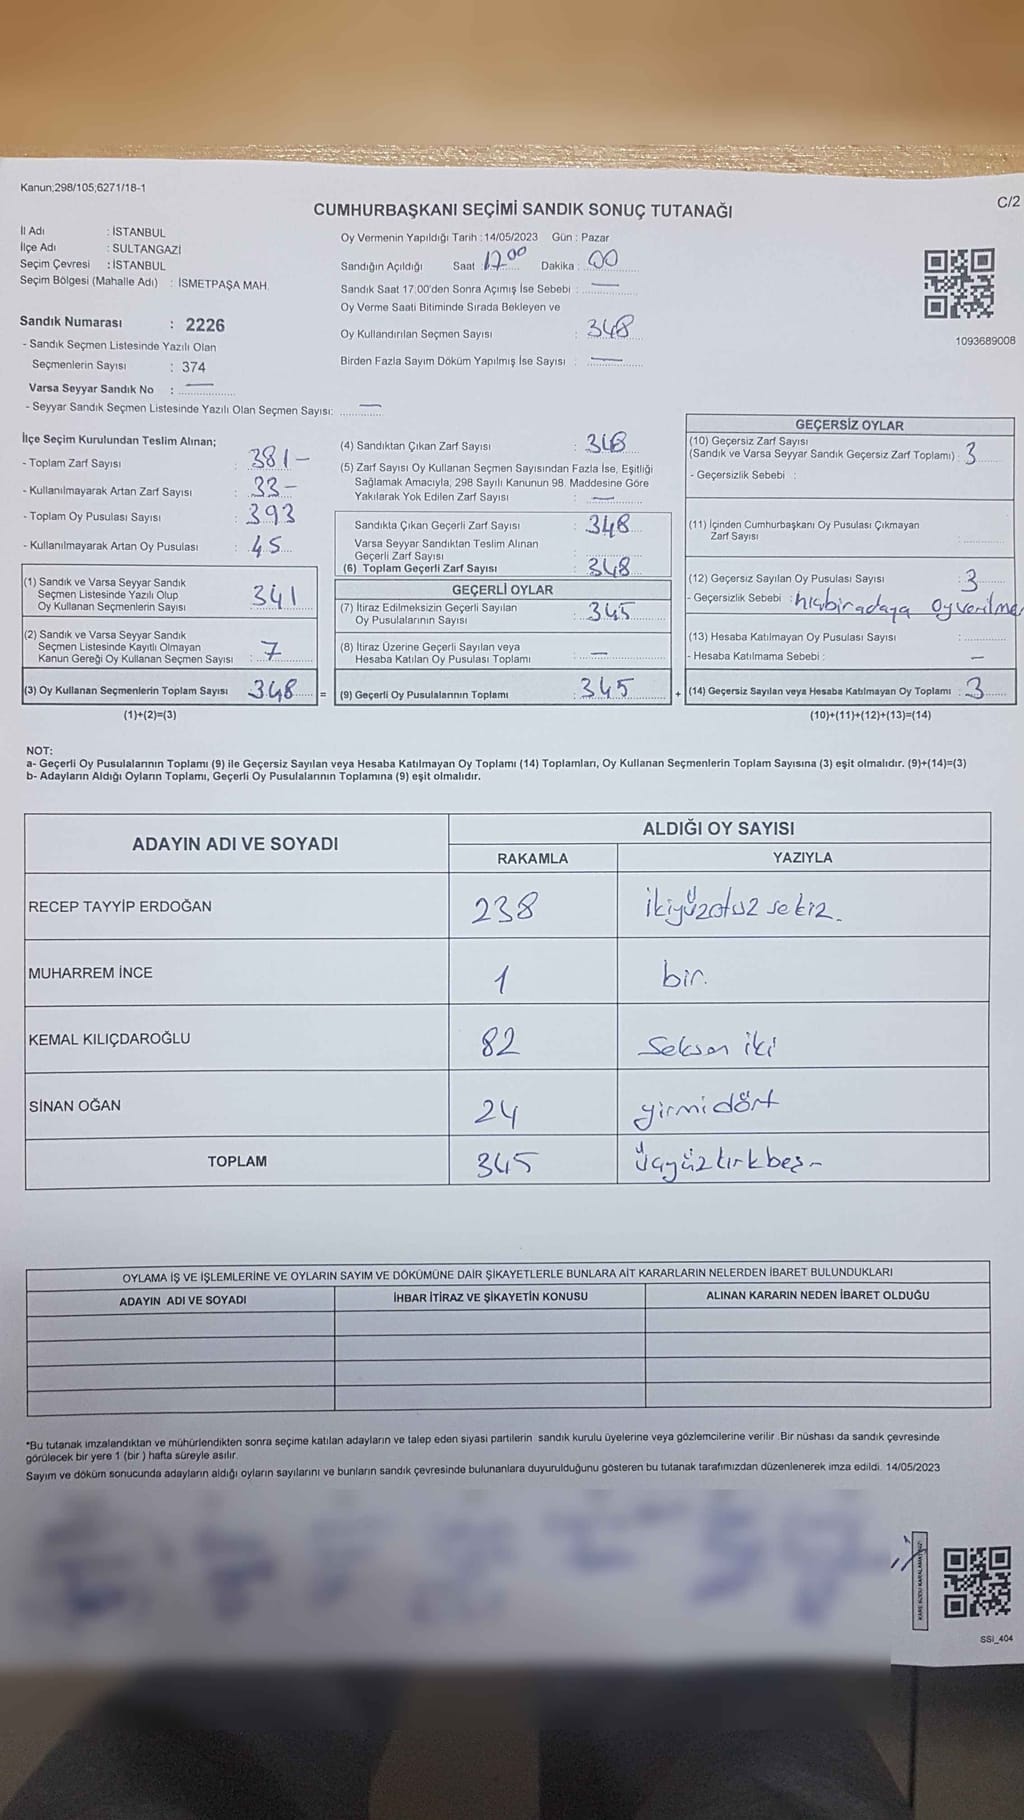 Kanun;298/105;6271/18-1
C/2
CUMHURBAŞKANI SEÇİMİ SANDIK SONUÇ TUTANAĞI
İl Adı : İSTANBUL
İlçe Adı : SULTANGAZİ
Seçim Çevresi : İSTANBUL
Seçim Bölgesi (Mahalle Adı) : İSMETPAŞA MAH.
Sandık Numarası : 2226
- Sandık Seçmen Listesinde Yazılı Olan
Seçmenlerin Sayısı : 374
Varsa Seyyar Sandık No : —
- Seyyar Sandık Seçmen Listesinde Yazılı Olan Seçmen Sayısı: —
Oy Vermenin Yapıldığı Tarih : 14/05/2023 Gün : Pazar
Sandığın Açıldığı Saat 17.00 Dakika : 00
Sandık Saat 17:00'den Sonra Açımış İse Sebebi : —
Oy Verme Saati Bitiminde Sırada Bekleyen ve
Oy Kullandırılan Seçmen Sayısı : 348
Birden Fazla Sayım Döküm Yapılmış İse Sayısı : —
1093689008
İlçe Seçim Kurulundan Teslim Alınan;
- Toplam Zarf Sayısı : 381 -
- Kullanılmayarak Artan Zarf Sayısı : 33 -
- Toplam Oy Pusulası Sayısı : 393
- Kullanılmayarak Artan Oy Pusulası : 45
(1) Sandık ve Varsa Seyyar Sandık
Seçmen Listesinde Yazılı Olup
Oy Kullanan Seçmenlerin Sayısı 341
(2) Sandık ve Varsa Seyyar Sandık
Seçmen Listesinde Kayıtlı Olmayan
Kanun Gereği Oy Kullanan Seçmen Sayısı : 7
(3) Oy Kullanan Seçmenlerin Toplam Sayısı 348 =
(1)+(2)=(3)
(4) Sandıktan Çıkan Zarf Sayısı : 348
(5) Zarf Sayısı Oy Kullanan Seçmen Sayısından Fazla İse, Eşitliği
Sağlamak Amacıyla, 298 Sayılı Kanunun 98. Maddesine Göre
Yakılarak Yok Edilen Zarf Sayısı : —
Sandıkta Çıkan Geçerli Zarf Sayısı : 348
Varsa Seyyar Sandıktan Teslim Alınan
Geçerli Zarf Sayısı :
(6) Toplam Geçerli Zarf Sayısı : 348
GEÇERLİ OYLAR
(7) İtiraz Edilmeksizin Geçerli Sayılan
Oy Pusulalarının Sayısı : 345
(8) İtiraz Üzerine Geçerli Sayılan veya
Hesaba Katılan Oy Pusulası Toplamı : —
(9) Geçerli Oy Pusulalarının Toplamı : 345 +
GEÇERSİZ OYLAR
(10) Geçersiz Zarf Sayısı
(Sandık ve Varsa Seyyar Sandık Geçersiz Zarf Toplamı) : 3
- Geçersizlik Sebebi :
(11) İçinden Cumhurbaşkanı Oy Pusulası Çıkmayan
Zarf Sayısı :
(12) Geçersiz Sayılan Oy Pusulası Sayısı : 3
- Geçersizlik Sebebi : hiçbir adaya oy verilme
(13) Hesaba Katılmayan Oy Pusulası Sayısı :
- Hesaba Katılmama Sebebi : —
(14) Geçersiz Sayılan veya Hesaba Katılmayan Oy Toplamı : 3
(10)+(11)+(12)+(13)=(14)
NOT:
a- Geçerli Oy Pusulalarının Toplamı (9) ile Geçersiz Sayılan veya Hesaba Katılmayan Oy Toplamı (14) Toplamları, Oy Kullanan Seçmenlerin Toplam Sayısına (3) eşit olmalıdır. (9)+(14)=(3)
b- Adayların Aldığı Oyların Toplamı, Geçerli Oy Pusulalarının Toplamına (9) eşit olmalıdır.
ADAYIN ADI VE SOYADI
ALDIĞI OY SAYISI
RAKAMLA YAZIYLA
RECEP TAYYİP ERDOĞAN 238 ikiyüzotuz sekiz.
MUHARREM İNCE 1 bir.
KEMAL KILIÇDAROĞLU 82 Seksen iki
SİNAN OĞAN 24 yirmidört
TOPLAM 345 üçyüzkırkbeş -
OYLAMA İŞ VE İŞLEMLERİNE VE OYLARIN SAYIM VE DÖKÜMÜNE DAİR ŞİKAYETLERLE BUNLARA AİT KARARLARIN NELERDEN İBARET BULUNDUKLARI
ADAYIN ADI VE SOYADI İHBAR İTİRAZ VE ŞİKAYETİN KONUSU ALINAN KARARIN NEDEN İBARET OLDUĞU
*Bu tutanak imzalandıktan ve mühürlendikten sonra seçime katılan adayların ve talep eden siyasi partilerin sandık kurulu üyelerine veya gözlemcilerine verilir. Bir nüshası da sandık çevresinde
görülecek bir yere 1 (bir ) hafta süreyle asılır.
Sayım ve döküm sonucunda adayların aldığı oyların sayılarını ve bunların sandık çevresinde bulunanlara duyurulduğunu gösteren bu tutanak tarafımızdan düzenlenerek imza edildi. 14/05/2023
KARE KODU KARALAMAYINIZ
SSİ_404